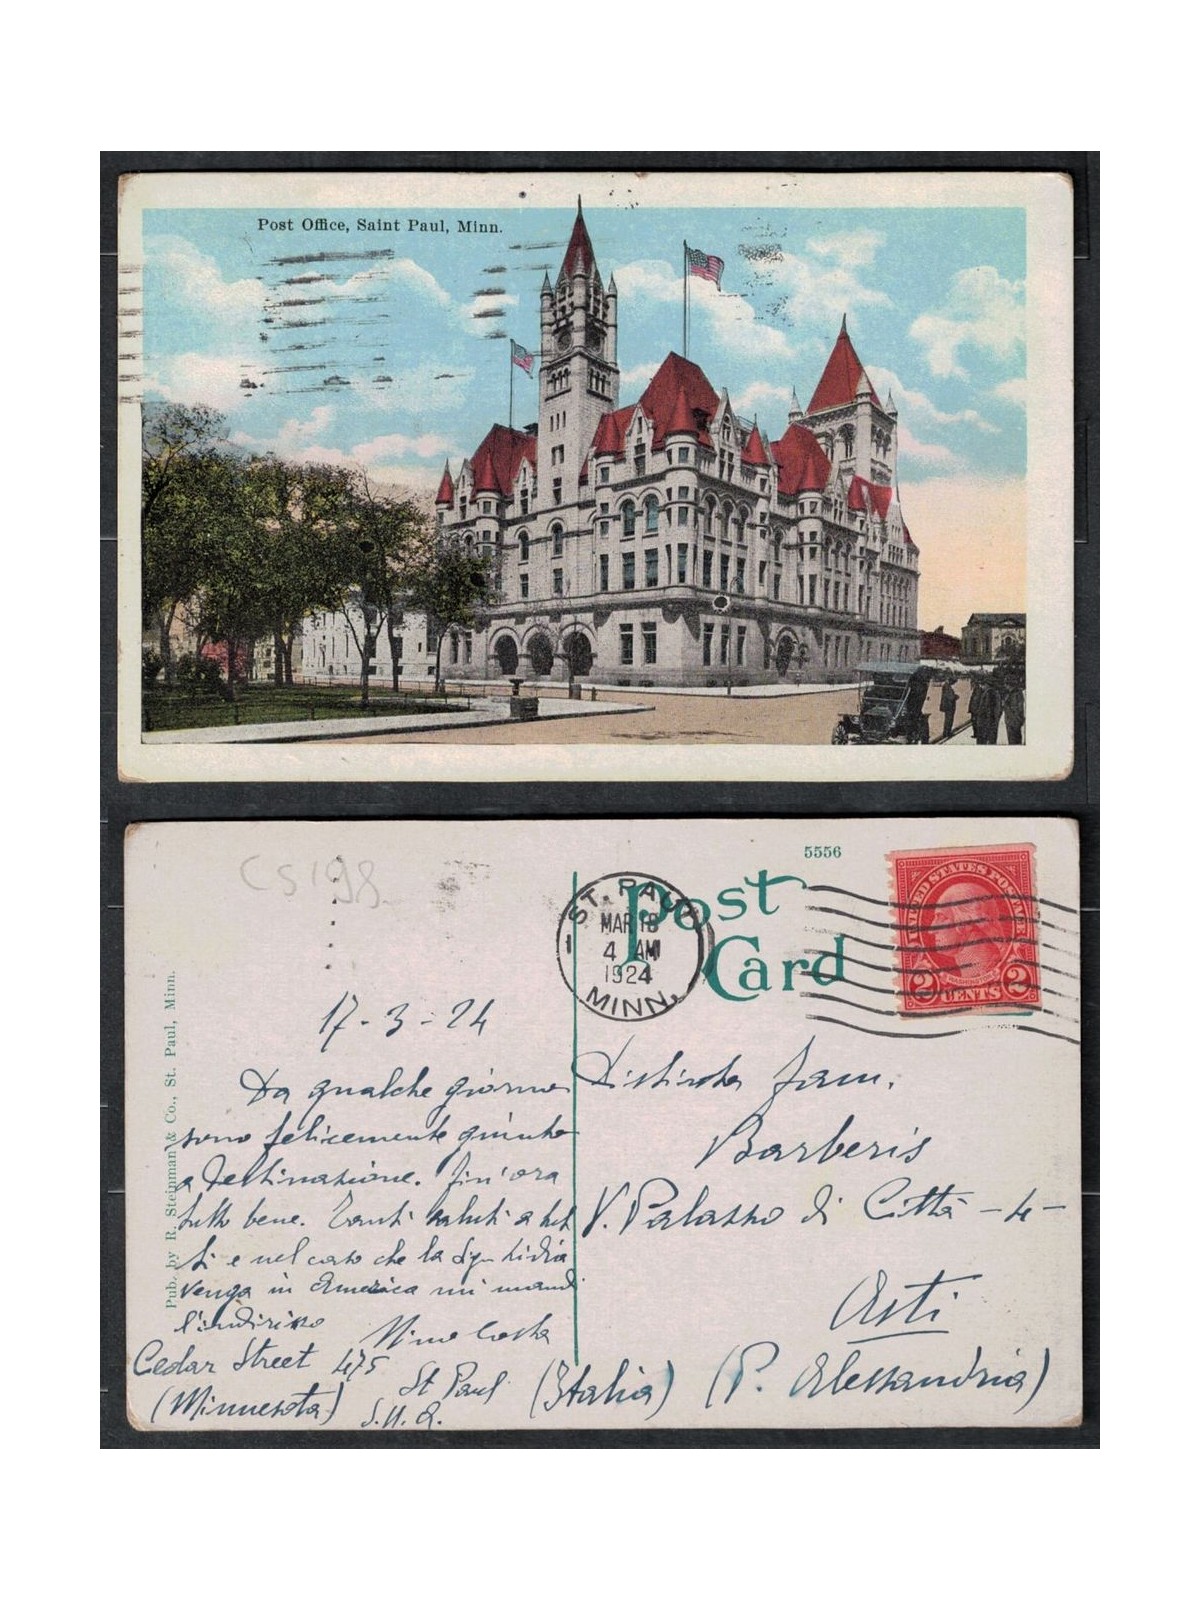 Post Office, Saint Paul, Minn.
CS198
5556
Post
Card
ST. PAUL
1
MAR 18
4 AM
1924
MINN.
UNITED STATES POSTAGE
WASHINGTON
2 CENTS 2
Pub. by R. Steinman & Co., St. Paul, Minn.
17-3-24
Da qualche giorno
sono felicemente giunto
a destinazione. Fin'ora
tutto bene. Tanti saluti a tut
ti e nel caso che la Sign Lidia
venga in America mi mandi
l'indirizzo
Nino Costa
Cedar Street 475
St Paul
(Minnesota)
S.U.A.
Distinta fam.
Barberis
V. Palazzo di Città -4-
Asti
(Italia) (P. Alessandria)